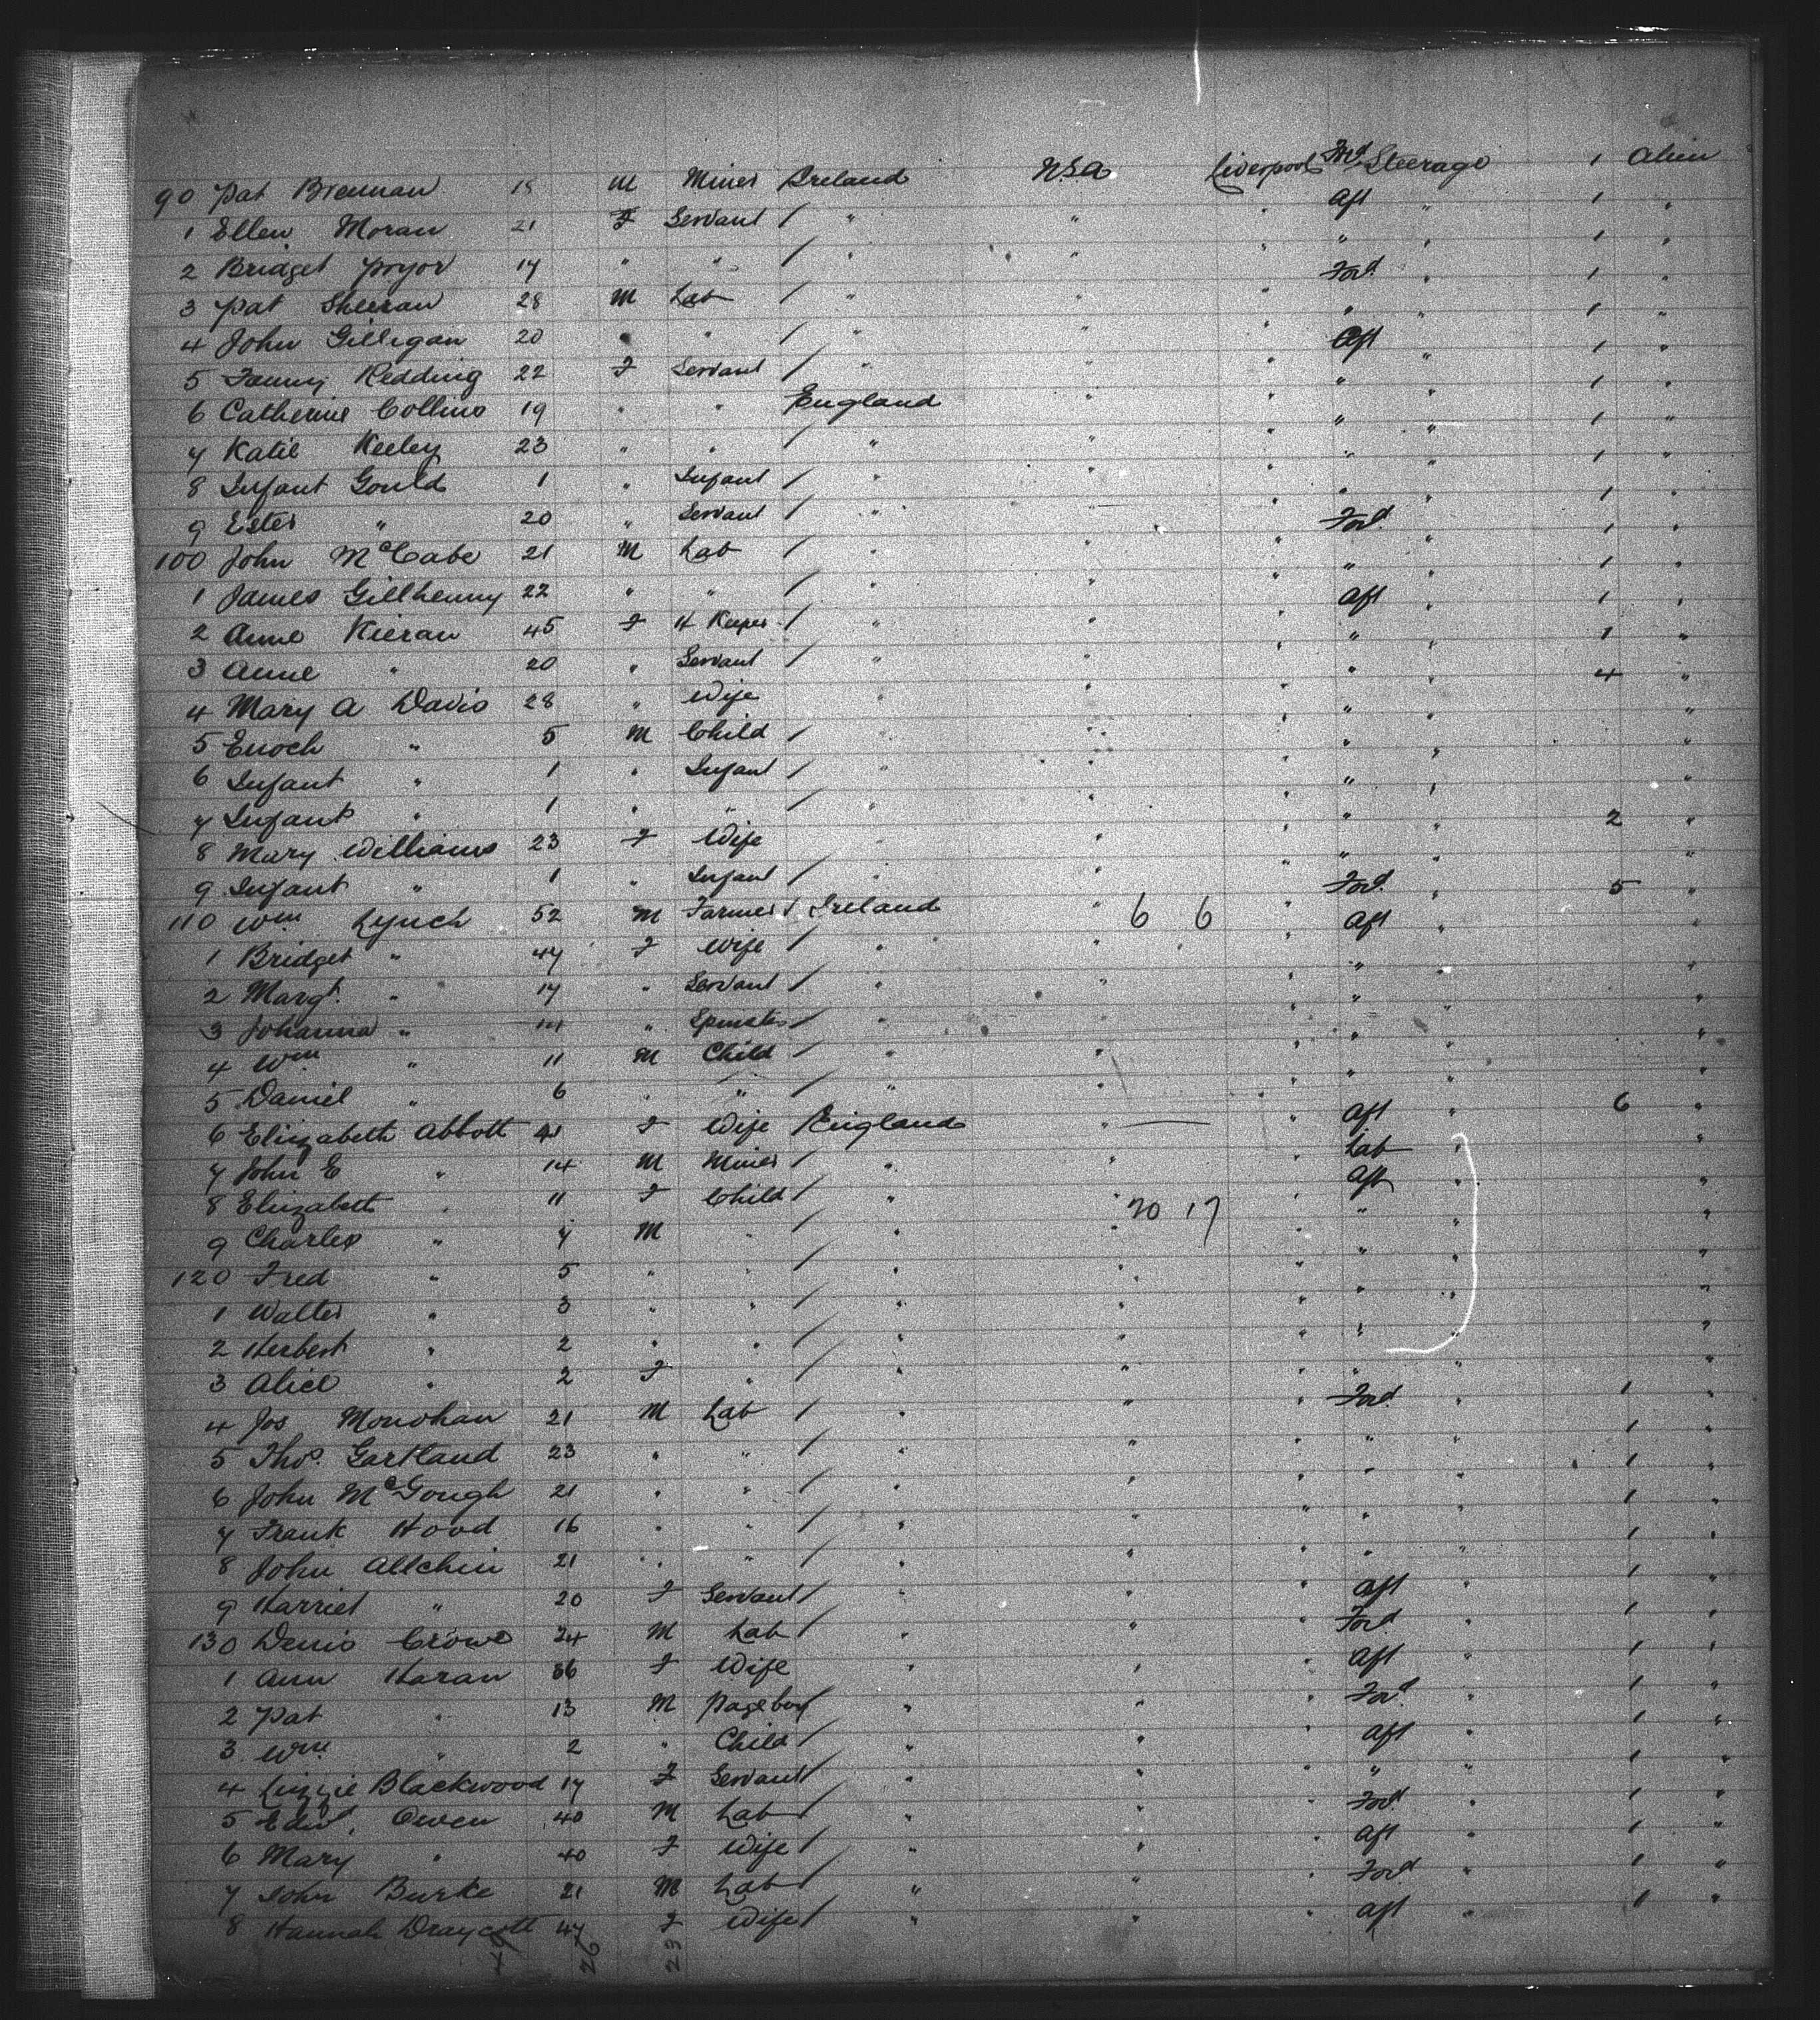 90 Pat Brennan 18 M Miner Ireland U.S.A. Liverpool Ford Steerage 1 Alien
1 Ellen Moran 21 F Servant / " " " Aft " 1 "
2 Bridget Pryor 17 " " / " " " " " 1 "
3 Pat Sheeran 28 M Lab / " " " Ford " 1 "
4 John Gilligan 20 " " / " " " " " 1 "
5 Fanny Redding 22 F Servant / " " " Aft " 1 "
6 Catherine Collins 19 " " England " " " " 1 "
7 Katie Keeley 23 " " / " " " " " 1 "
8 Infant Gould 1 " Infant / " " " " " 1 "
9 Ester " 20 " Servant / " " " " " 1 "
100 John McCabe 21 M Lab / " " " Ford " 1 "
1 James Gillhenny 22 " " / " " " " " 1 "
2 Anne Kieran 45 F H Keeper / " " " Aft " 1 "
3 Anne " 20 " Servant / " " " " " 1 "
4 Mary A Davis 28 " Wife " " " " " 4 "
5 Enoch " 5 M Child / " " " " " "
6 Infant " 1 " Infant / " " " " " "
7 Infant " 1 " " / " " " " " "
8 Mary Williams 23 F Wife " " " " " 2 "
9 Infant " 1 " Infant / " " " " " "
110 Wm Lynch 52 M Farmer / Ireland " 6 6 " Ford " 5 "
1 Bridget " 47 F Wife / " " " Aft " "
2 Margt. " 17 " Servant / " " " " " "
3 Johanna " 14 " Spinster / " " " " " "
4 Wm " 11 M Child / " " " " " "
5 Daniel " 6 " " / " " " " " "
6 Elizabeth Abbott 41 F Wife England " — " Aft " 6 "
7 John E " 14 M Miner / " " " Lab " "
8 Elizabeth " 11 F Child / " " 20 17 " Aft " "
9 Charles " 7 M " / " " " " " "
120 Fred " 5 " " / " " " " " "
1 Walter " 3 " " / " " " " " "
2 Herbert " 2 " " / " " " " " "
3 Alice " 2 F " / " " " " " "
4 Jos Monohan 21 M Lab / " " " Ford " 1 "
5 Thos. Gartland 23 " " / " " " " " 1 "
6 John McGough 21 " " / " " " " " 1 "
7 Frank Hood 16 " " / " " " " " 1 "
8 John Allchin 21 " " / " " " " " 1 "
9 Harriet " 20 F Servant / " " " Aft " 1 "
130 Denis Crowe 24 M Lab / " " " Ford " 1 "
1 Ann Haran 36 F Wife " " " Aft 1 "
2 Pat " 13 M Pageboy / " " " Ford " 1 "
3 Wm " 2 " Child / " " " Aft " 1 "
4 Lizzie Blackwood 17 F Servant / " " " " " 1 "
5 Edwd. Owen 40 M Lab / " " " Ford " 1 "
6 Mary " 40 F Wife / " " " Aft 1 "
7 John Burke 21 M Lab / " " " Ford " 1 "
8 Hannah Draycott 47 F Wife / " " " Aft " 1 "
26 23